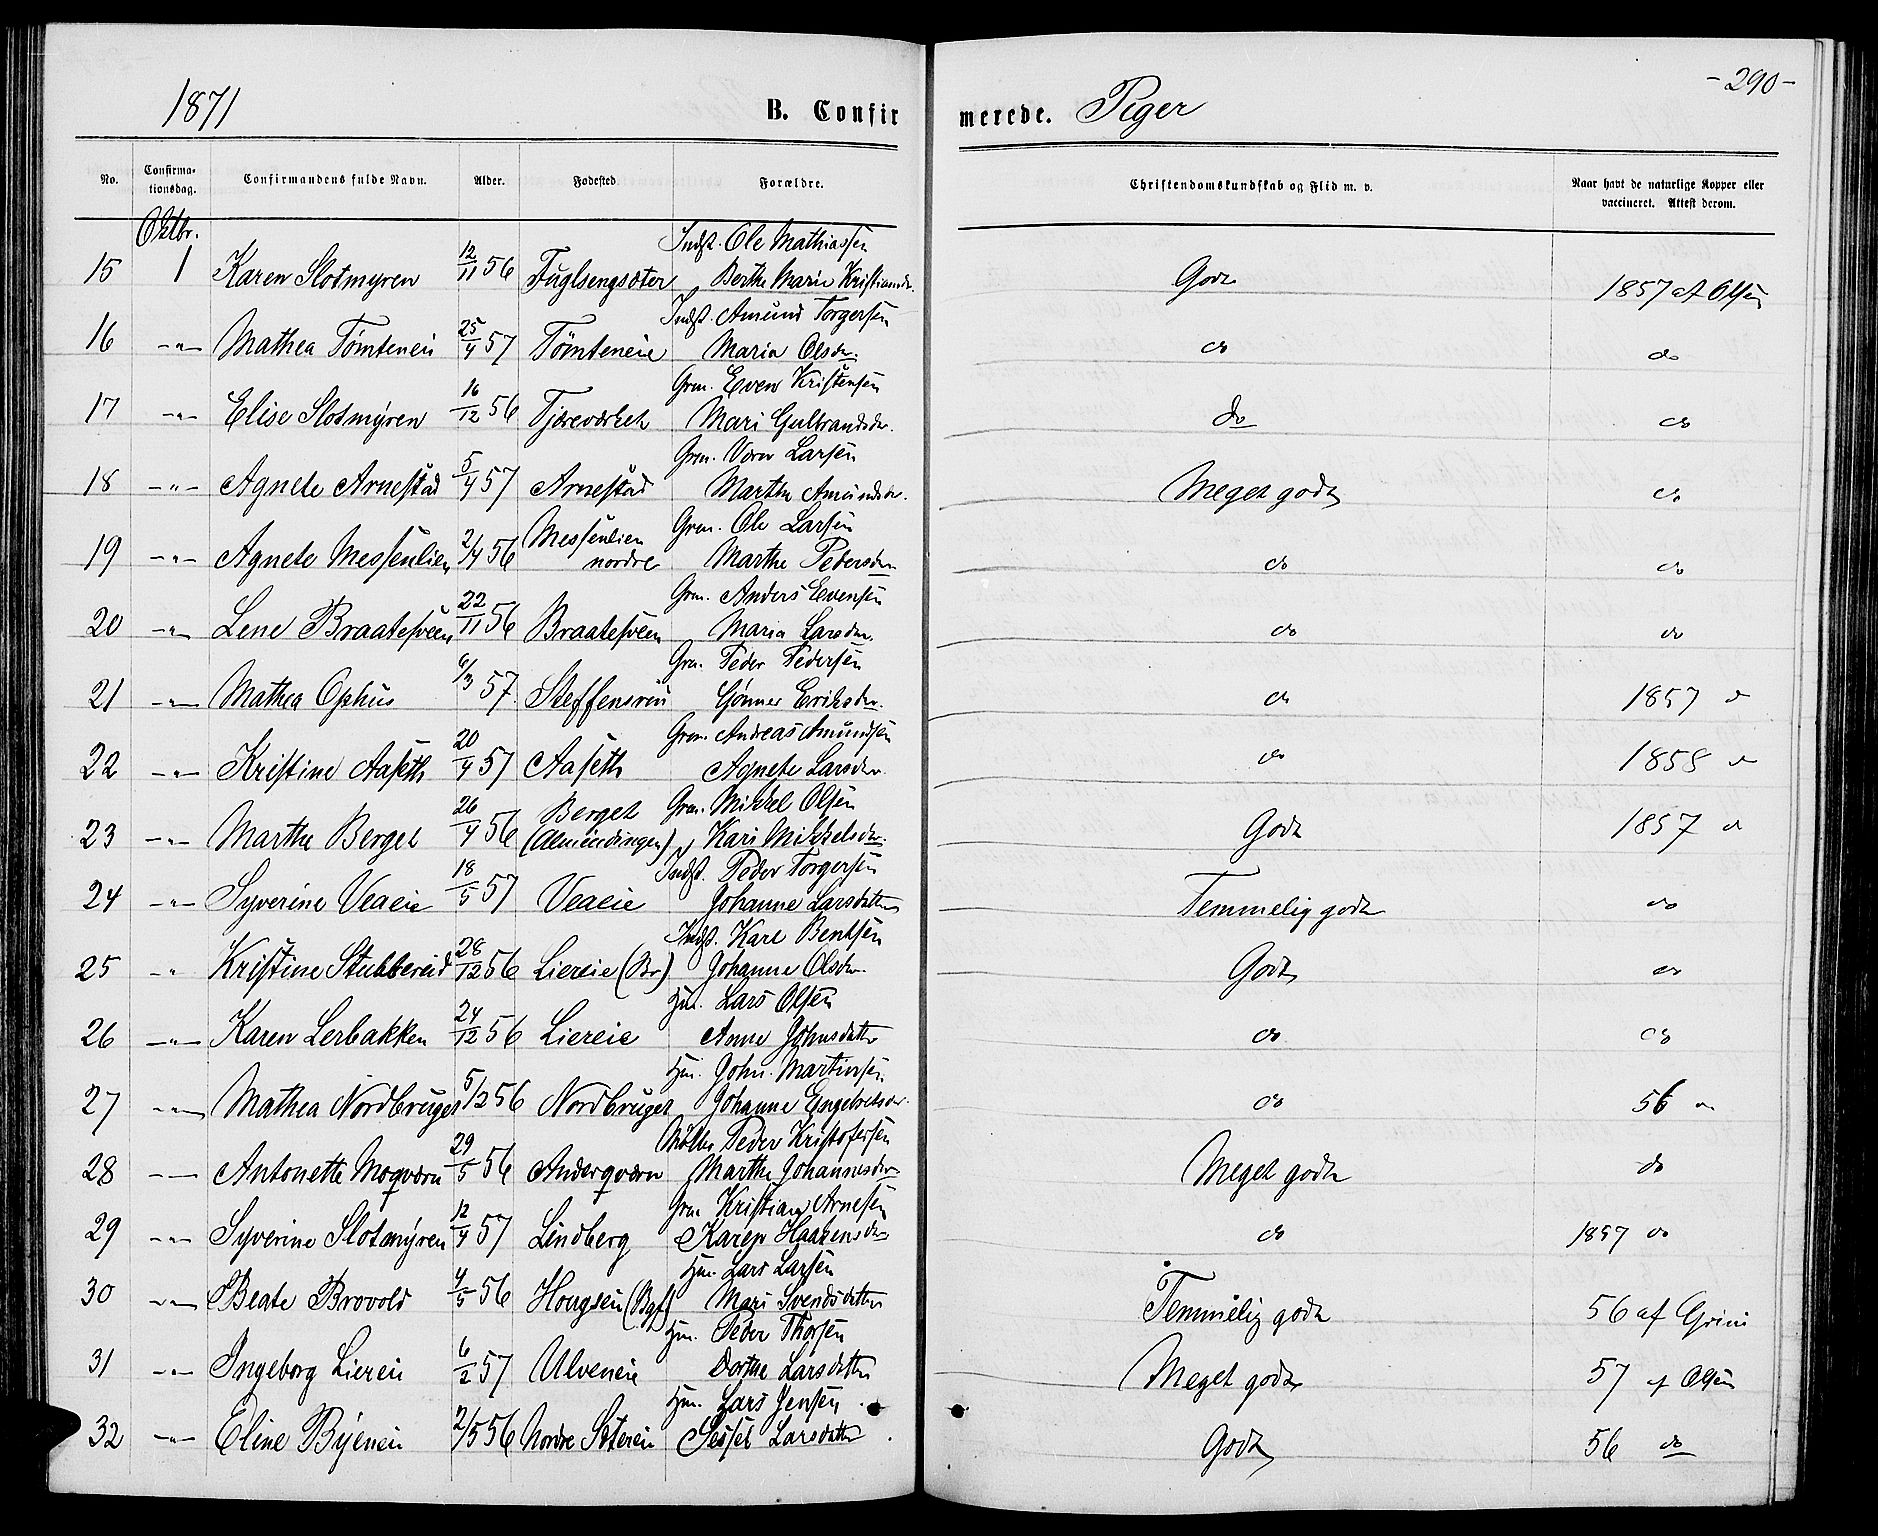 1871 B. Confirmerede. Piger -290-
No. Confirma-tionsdag. Confirmandens fulde Navn. Alder. Fødested Forældre. Christendomskundskab og Flid m. v. Naar havt de naturlige Kopper eller vaccineret. Attest derom.
Oktbr.
Indst. Ole Mathiassen
15 1 Karen Slotmyren 12/11 56 Fuglsengsæter Berthe Marie Kristiansdr. Godt 1857 af Olsen
Indst. Amund Torgersen
16 -"- Mathea Tömteneie 25/4 57 Tömteneie Maria Olsdr. do do
Grm. Even Kristensen
17 -"- Elise Slotmyren 16/12 56 Tjæreværket Mari Gulbrandsdr. do do
Grm. Larsen
18 -"- Agnete Arnestad 5/4 57 Arnestad Marthe Amundsdr. Meget godt do
Messenlien Grm. Ole Larsen
19 -"- Agnete Messenlien 2/4 56 nordre Marthe Pedersdr. do do
Grm. Anders Evensen
20 -"- Lene Braatesveen 22/11 56 Braatesveen Maria Larsdr. do do
Grm. Peder Pedersen
21 -"- Mathea Ophus 6/3 57 Steffensrui Gunner Eriksdr. do 1857 do
Grm. Andreas Amundsen
22 -"- Kristine Aaseth 20/4 57 Aaseth Agnete Larsdr. do 1858 do
Berget Grm. Mikkel Olsen
23 -"- Marthe Berget 26/4 56 (Almendingen) Kari Mikkelsdr. Godt 1857 do
Indst. Peder Torgersen
24 -"- Syverine Veaeie 18/5 57 Veaeie Johanne Larsdatter Temmelig godt do
Indst. Kare Bentsen
25 " Kristine Stubbereid 28/12 56 Liereie (Br) Johanne Olsdr. Godt do
Hm. Lars Olsen
26 -"- Karen Lerbakken 24/12 56 Liereie Anne Johnsdatter do do
Hm. John Martinsen
27 -"- Mathea Nordbruget 5/12 56 Nordbruget Johanne Engebretsdr. do 56 do
Möller Peder Kristofersen
28 -"- Antonette Moqværn 29/5 56 Anderqværn Marthe Johannesdr. Meget godt do
Grm Kristian Arnesen
29 -"- Syverine Slotmyren 12/4 57 Lindberg Karen Haakensdr do 1857 do
Hm. Lars Larsen
30 -"- Beate Brovold 4/5 56 Hougseie Mari Svendsdatter Temmelig godt 56 af Grini
Hm. Peder Thorsen
31 -"- Ingeborg Liereie 6/2 57 Ulveneie Dorthe Larsdatter Meget godt 57 af Olsen
Hm. Lars Jensen
32 -"- Eline Byeneie 2/5 56 Nordre Sætereie Sessel Larsdatter Godt 56 do